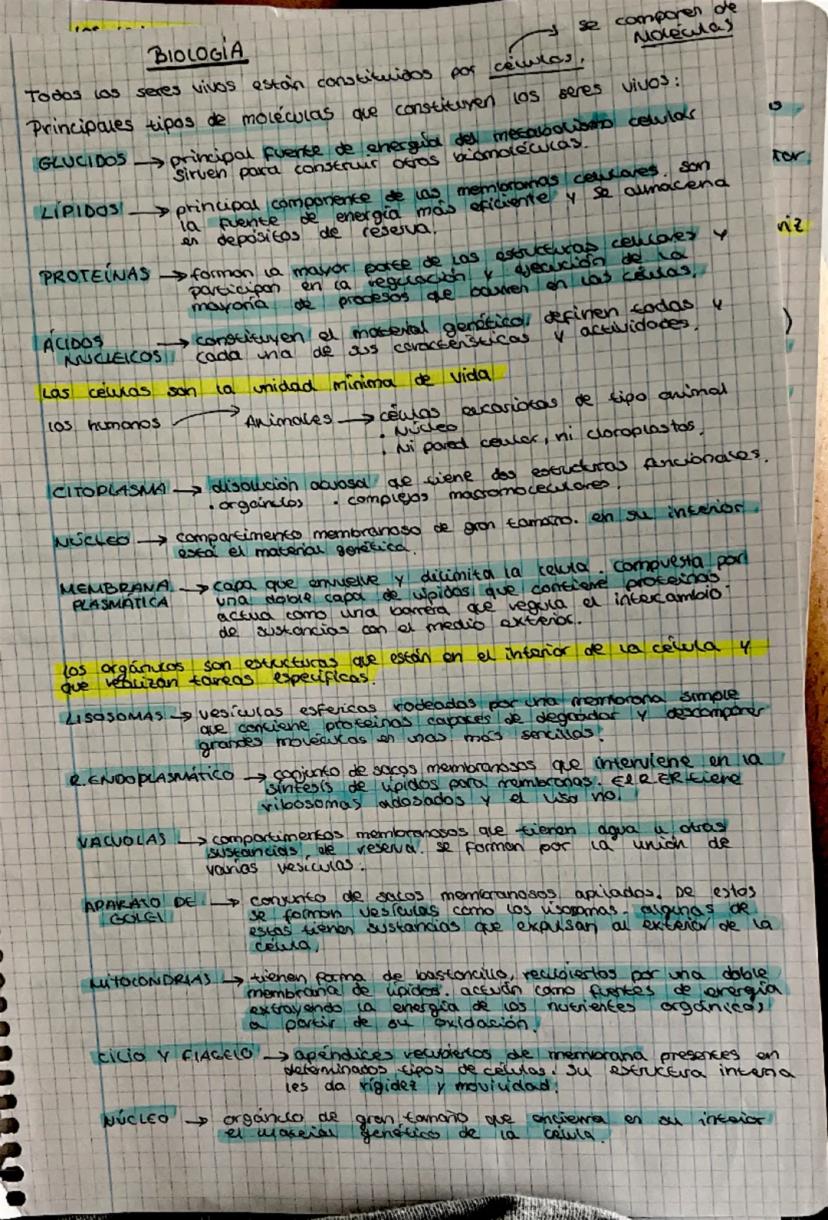 se componen de
Moléculas
BIOLOGÍA
Todos los seres vivos están constituidos por células.
Principales tipos de moléculas que constituyen los seres vivos:
GLUCIDOS → principal fuente de energía del metabolismo celular
sirven para construir otras biomoléculas.
LÍPIDOS → principal componente de las membranas celulares. son
la fuente de energía más eficiente y se almacena
en depósitos de reserva.
PROTEÍNAS → forman la mayor parte de las estructuras celulares y
participan en la regulación y ejecución de la
mayoría de procesos que ocurren en las células.
ÁCIDOS → constituyen el material genético, definen todas y
NUCLEICOS cada una de sus características y actividades.
Las células son la unidad mínima de vida
los humanos → Animales → células eucariotas de tipo animal
· Núcleo
· Ni pared celular, ni cloroplastos.
CITOPLASMA → disolución acuosa que tiene dos estructuras funcionales.
· orgánulos · complejos macromoleculares.
NÚCLEO → compartimento membranoso de gran tamaño. en su interior
está el material genética.
MEMBRANA → capa que envuelve y dilimita la celula. compuesta por
PLASMÁTICA una doble capa de lípidos que contiene proteínas.
actua como una barrera que regula el intercambio
de sustancias con el medio exterior.
los orgánulos son estructuras que están en el interior de la célula y
que realizan tareas especificas.
LISOSOMAS → vesículas esfericas rodeadas por una membrana simple
que contiene proteinas capaces de degradar y descomponer
grandes moléculas en unas más sencillas.
R.ENDOPLASMÁTICO → conjunto de sacos membranosos que interviene en la
síntesis de lípidos para membranas. El R.ER tiene
ribosomas adosados y el liso no.
VACUOLAS → compartimentos membranosos que tienen agua u otras
sustancias de reserva. se forman por la unión de
varias vesículas.
APARATO DE → conjunto de sacos membranosos apilados. De estos
GOLGI se forman vesículas como los lisosomas. algunas de
estas tienen sustancias que expulsan al exterior de la
célula,
MITOCONDRIAS → tienen forma de bastoncillo, recubiertos por una doble
membrana de lípidos. actúan como fuentes de energía
extrayendo la energía de los nutrientes orgánicos,
a partir de su oxidación.
CILIO Y FLAGELO → apéndices recubiertos de membrana presentes en
determinados tipos de células. Su estructura interna
les da rigidez y movilidad.
NÚCLEO → orgánulo de gran tamaño que encierra en su interior
el material genético de la célula.